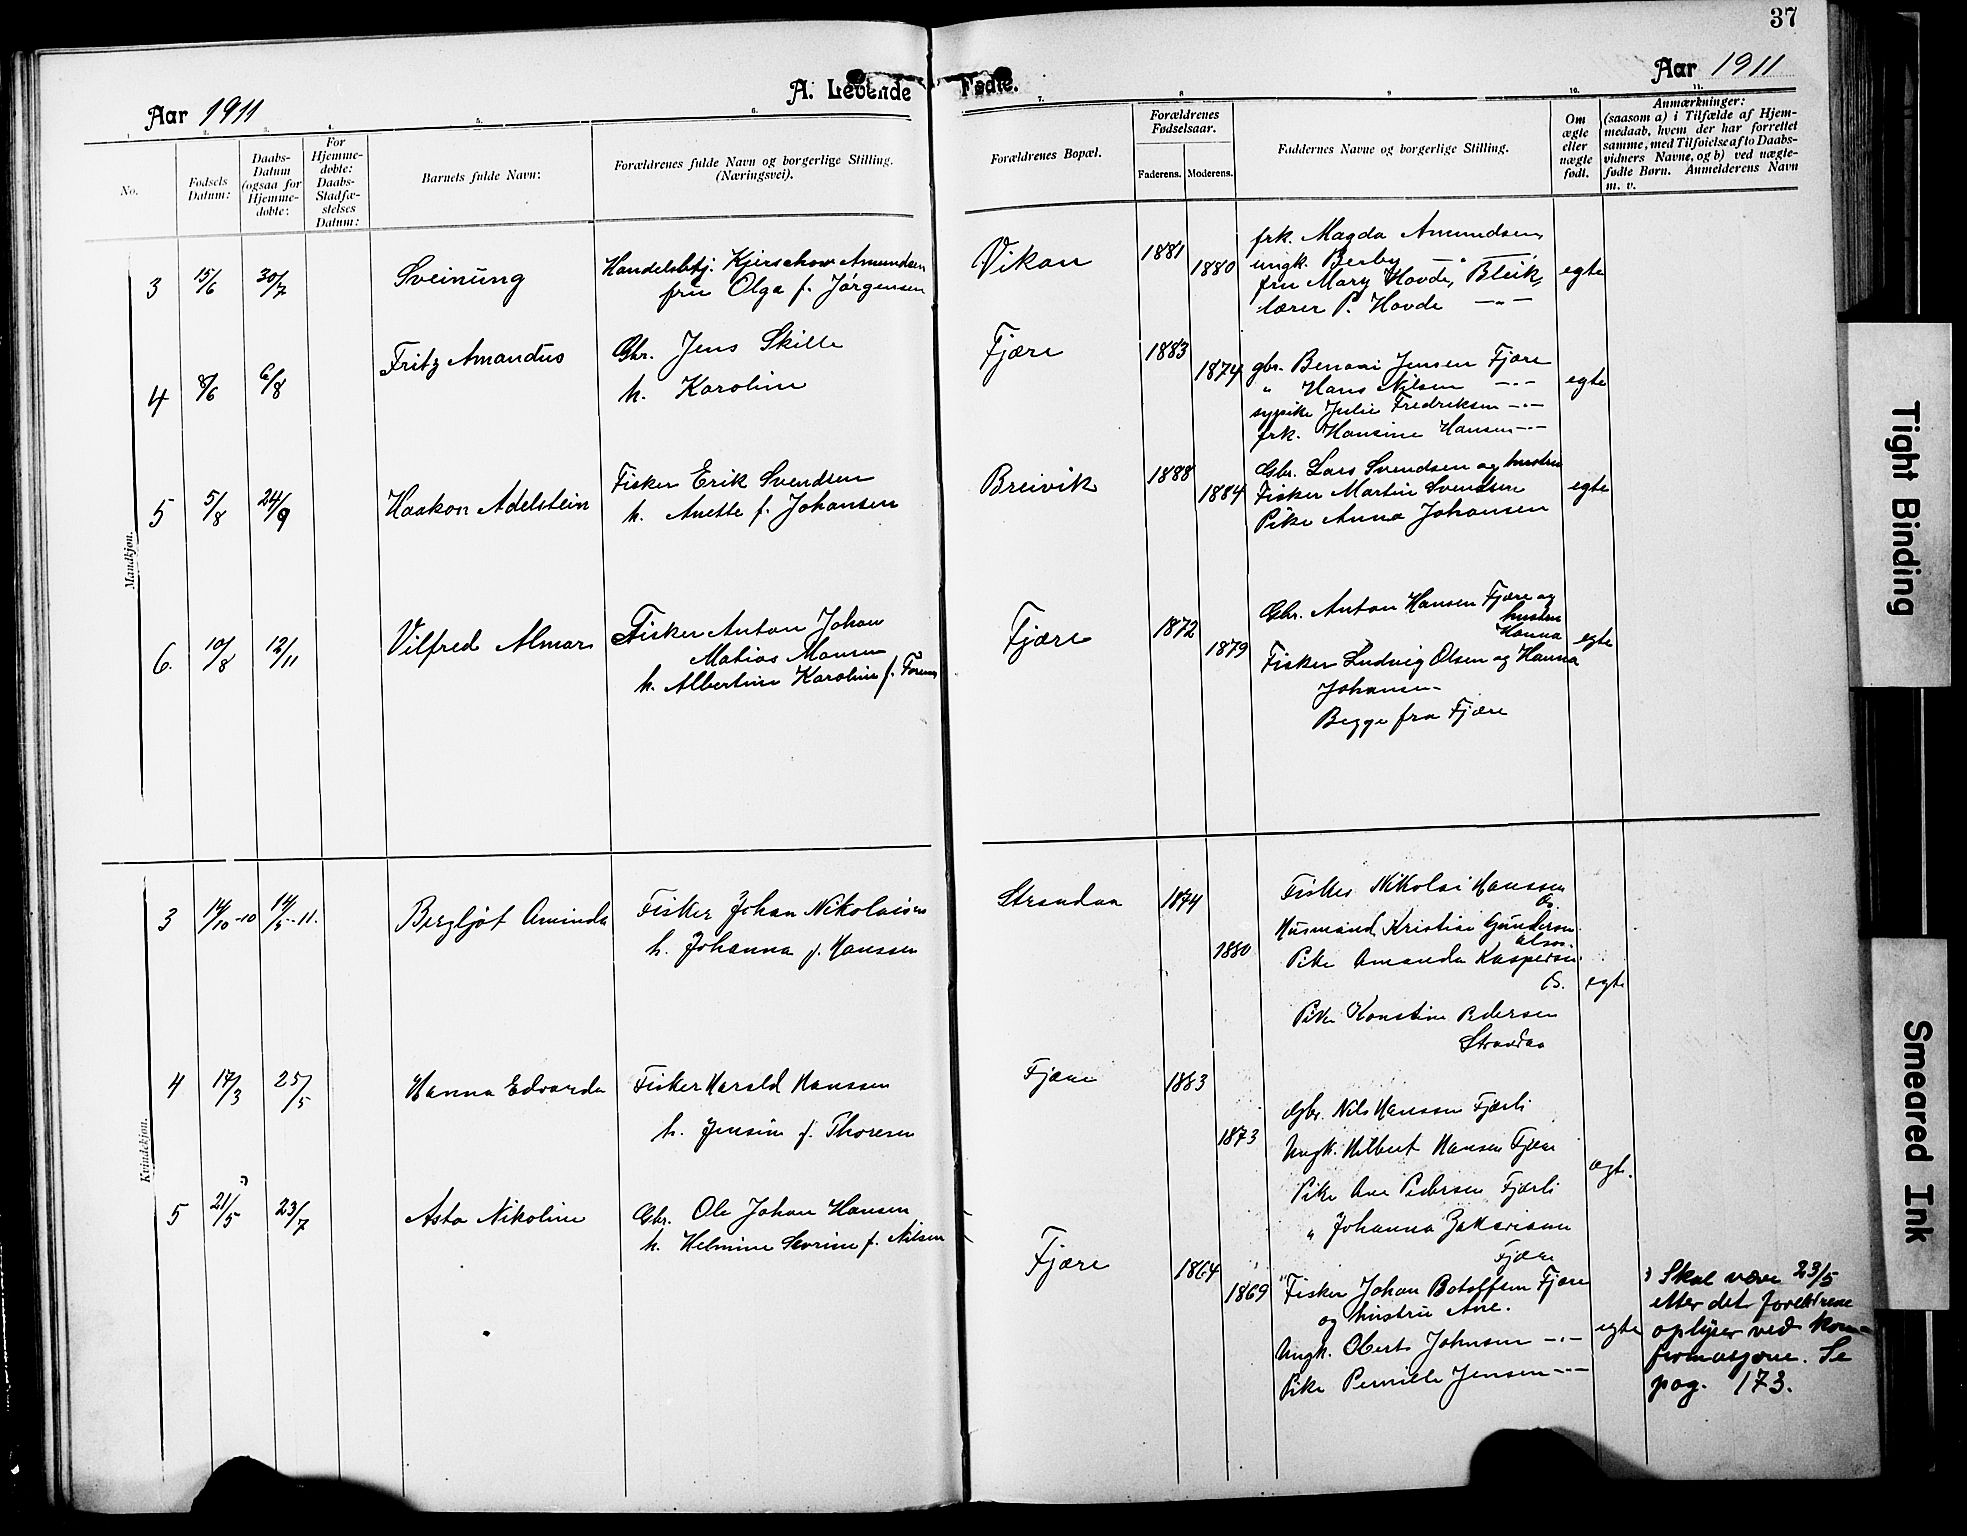 37
Aar 1911
A. Levende Fødte.
Aar 1911
1.
2.
3.
4.
5.
6.
7.
8
9
10.
11.
No.
Fødsels Datum:
Daabs-Datum (ogsaa for Hjemmedøbte:
For Hjemmedøbte: Daabs-Stadfæstelses Datum:
Barnets fulde Navn:
Forældrenes fulde Navn og borgerlige Stilling.
(Næringsvei).
Forældrenes Bopæl.
Forældrenes Fødselsaar.
Faderens. Moderens.
Faddernes Navne og borgerlige Stilling.
Om ægte eller uægte født.
Anmærkninger:
(saasom a) i Tilfælde af Hjem-
medaab, hvem der har forrettet
samme, med Tilføielse af to Daabs-
vidners Navne, og b) ved uægte-
fødte Børn. Anmelderens Navn
m. v.
Mandkjøn.
3 15/6 30/7 Sveinung
Handelsbetj. Kjerschow Amundsen
fru Olga f. Jørgensen
Vikan 1881 1880
frk. Magda Amundsen,
ungk. Berby — " —
fru Mary Hovde, Bleik,
lærer P. Hovde — " —
egte
4 8/6 6/8 Fritz Amandus
Gbr. Jens Skille
h. Karoline
Fjære 1883 1874
gbr. Benoni Jensen Fjære
" Hans Nilsen — " —
sypike Julie Fredriksen — " —
frk. Hansine Hansen — " —
egte
5 5/8 24/9 Haakon Adelstein
Fisker Erik Svendsen
h. Anette f. Johansen
Breivik 1888 1884
Gbr. Lars Svendsen og hustru
Fisker Martin Svendsen
Pike Anna Johansen
egte
6. 10/8 12/11 Vilfred Almar
Fisker Anton Johan
Matias Monsen
h. Albertine Karoline f.
Fjære 1872 1879
Gbr. Anton Hansen Fjære og
hustru
Hanna
Fisker Ludvig Olsen og Hanna
Johansen
Begge fra Fjære
egte
Kvindekjøn.
3 14/10-10 14/5-11. Bergljot Aminda
Fisker Johan Nikolaisen
h. Johanna f. Hanssen
Strandaa 1874 1880
Fisker Nikolai Hanssen
Husmand Kristian Gundersen
Pike Amanda Kaspersen
Pike Konstine Pedersen
Strandaa
egte
4 17/3 25/5 Hanna Edvarda
Fisker Harald Hanssen
h. Jensine f. Thoresen
Fjære 1883 1873
Gbr. Nils Hanssen Fjærli
Ungk. Hilbert Hansen Fjære
Pike Ane Pedersen Fjærli
" Johanna Zakariasen
Fjære
egte.
5 21/5 23/7 Asta Nikoline
Gbr. Ole Johan Hansen
h. Helmine Sevrine f. Nilsen
Fjære 1864 1869
Fisker Johan Botolfsen Fjære
og hustru Ane.
Ungk. Obert Johnsen — " —
Pike Pernille Jensen — " —
egte
Skal være 23/5
etter det foreldrene
oplyser ved kon-
firmasjone. Se
pag. 173.
Tight Binding
Smeared Ink